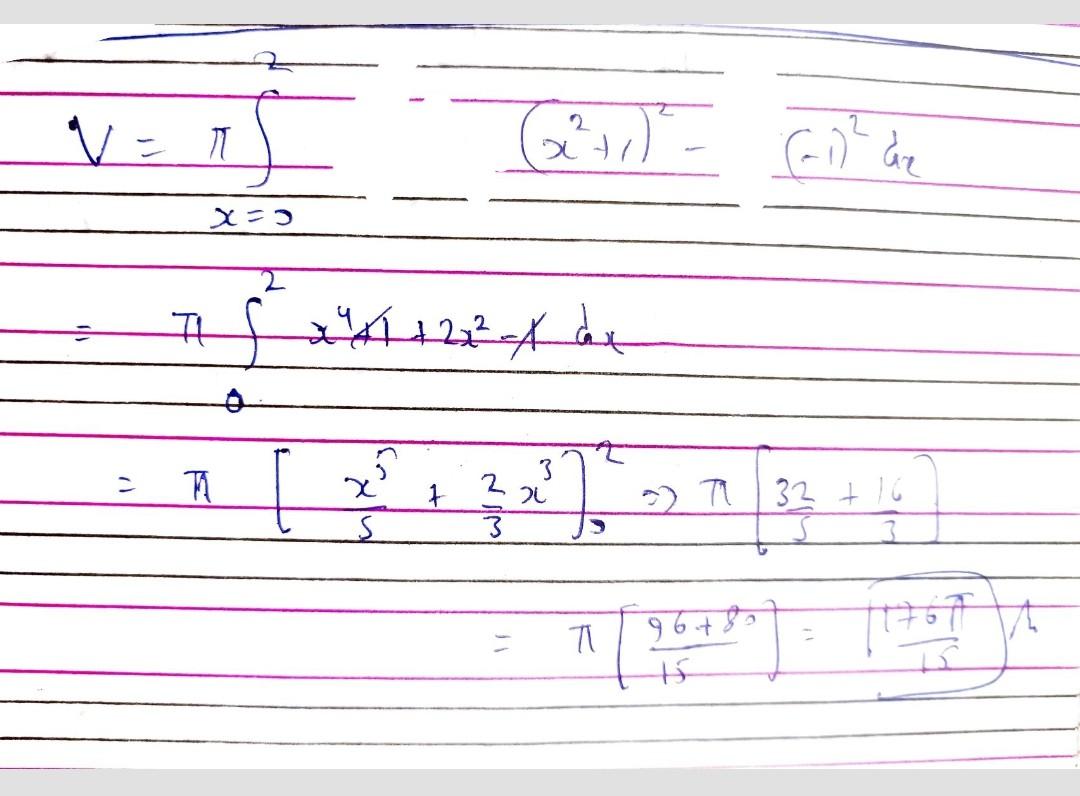 V = π ∫_{x=0}^{2} (x²+1)² - (-1)² dx
= π ∫_{0}^{2} x⁴ + 1 + 2x² - 1 dx
= π [x⁵/5 + 2/3 x³]_{0}^{2} => π [32/5 + 16/3]
= π [96+80/15] = 176π/15